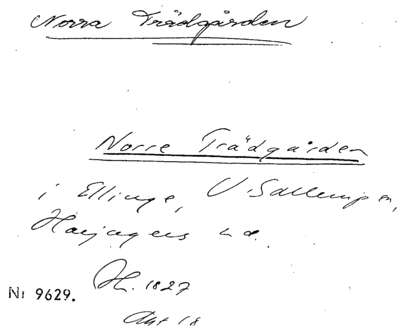 Norra Trädgården
Norre Trädgården
i Ellinge, V. Sallerup sn,
Harjagers hd.
H. 1827
Akt 18
Nr 9629.